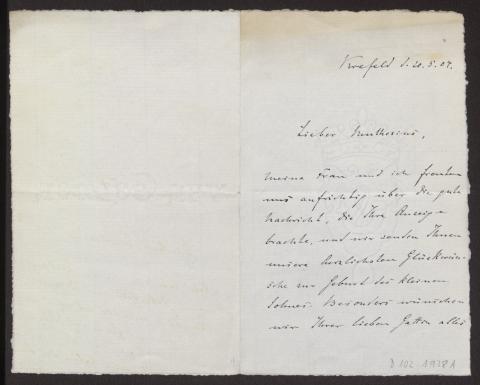 Krefeld d. 20.5.04.
Lieber Muthesius,
meine Frau und ich freuten
uns aufrichtig über die gute
Nachricht, die Ihre Anzeige
brachte, und wir senden Ihnen
unsere herzlichsten Glückwün-
sche zur Geburt des kleinen
Sohnes. Besonders wünschen
wir Ihrer lieben Gattin alles
D 102-1938 A